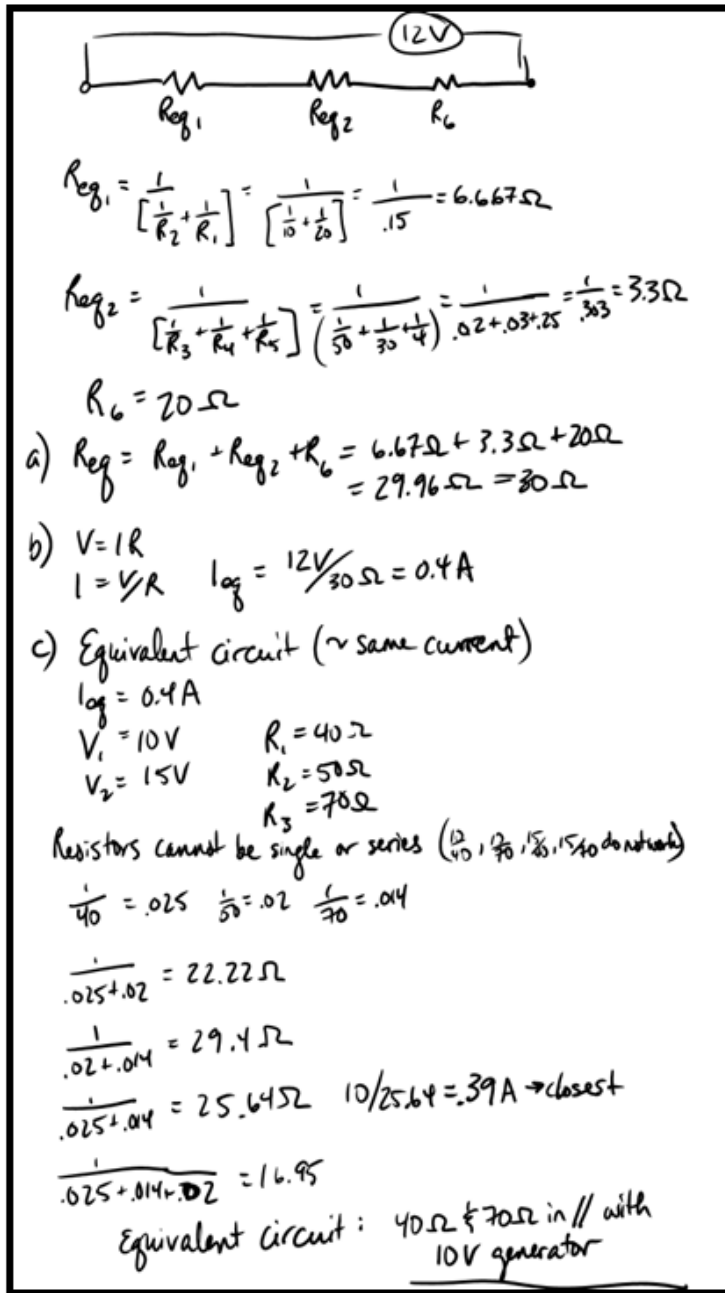 12V
Req₁ Req₂ R₆
Req₁ = 1/[1/R₂ + 1/R₁] = 1/[1/10 + 1/20] = 1/.15 = 6.667Ω
Req₂ = 1/[1/R₃ + 1/R₄ + 1/R₅] = 1/(1/50 + 1/30 + 1/4) = 1/.02+.03+.25 = 1/.303 = 3.3Ω
R₆ = 20Ω
a) Req = Req₁ + Req₂ + R₆ = 6.67Ω + 3.3Ω + 20Ω
= 29.96Ω = 30Ω
b) V=IR
I = V/R Ieq = 12V/30Ω = 0.4A
c) Equivalent circuit (~ same current)
Ieq = 0.4A
V₁ = 10V R₁ = 40Ω
V₂ = 15V R₂ = 50Ω
R₃ = 70Ω
Resistors cannot be single or series (do not work)
1/40 = .025 1/50 = .02 1/70 = .014
1/.025+.02 = 22.22Ω
1/.02+.014 = 29.4Ω
1/.025+.014 = 25.64Ω 10/25.64 = .39A → closest
1/.025+.014+.02 = 16.95
Equivalent circuit: 40Ω & 70Ω in // with
10V generator